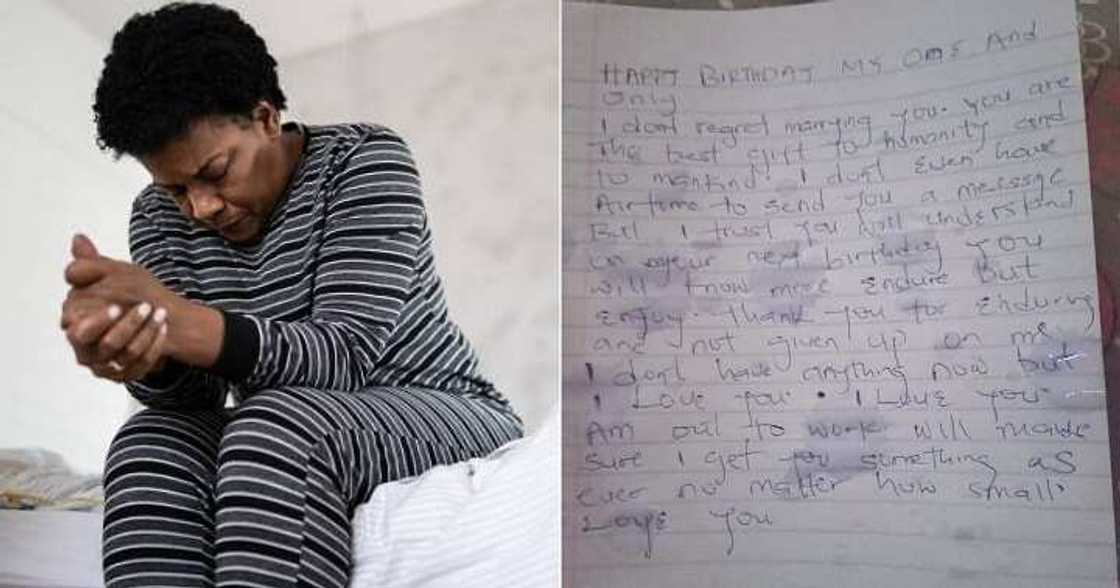 HAPPY BIRTHDAY MY ONE And
Only
I dont regret marrying you. You are
The best gift to humanity and
to mankind. I dont Even have
Airtime to send you a message
But I trust you will understand
in your next birthday you
will know more Endure But
Enjoy. Thank you for Enduring
and not given up on me
I dont have anything now but
I Love you. I Love you.
Am out to work will make
sure I get you something as
ever no matter how small.
Love you